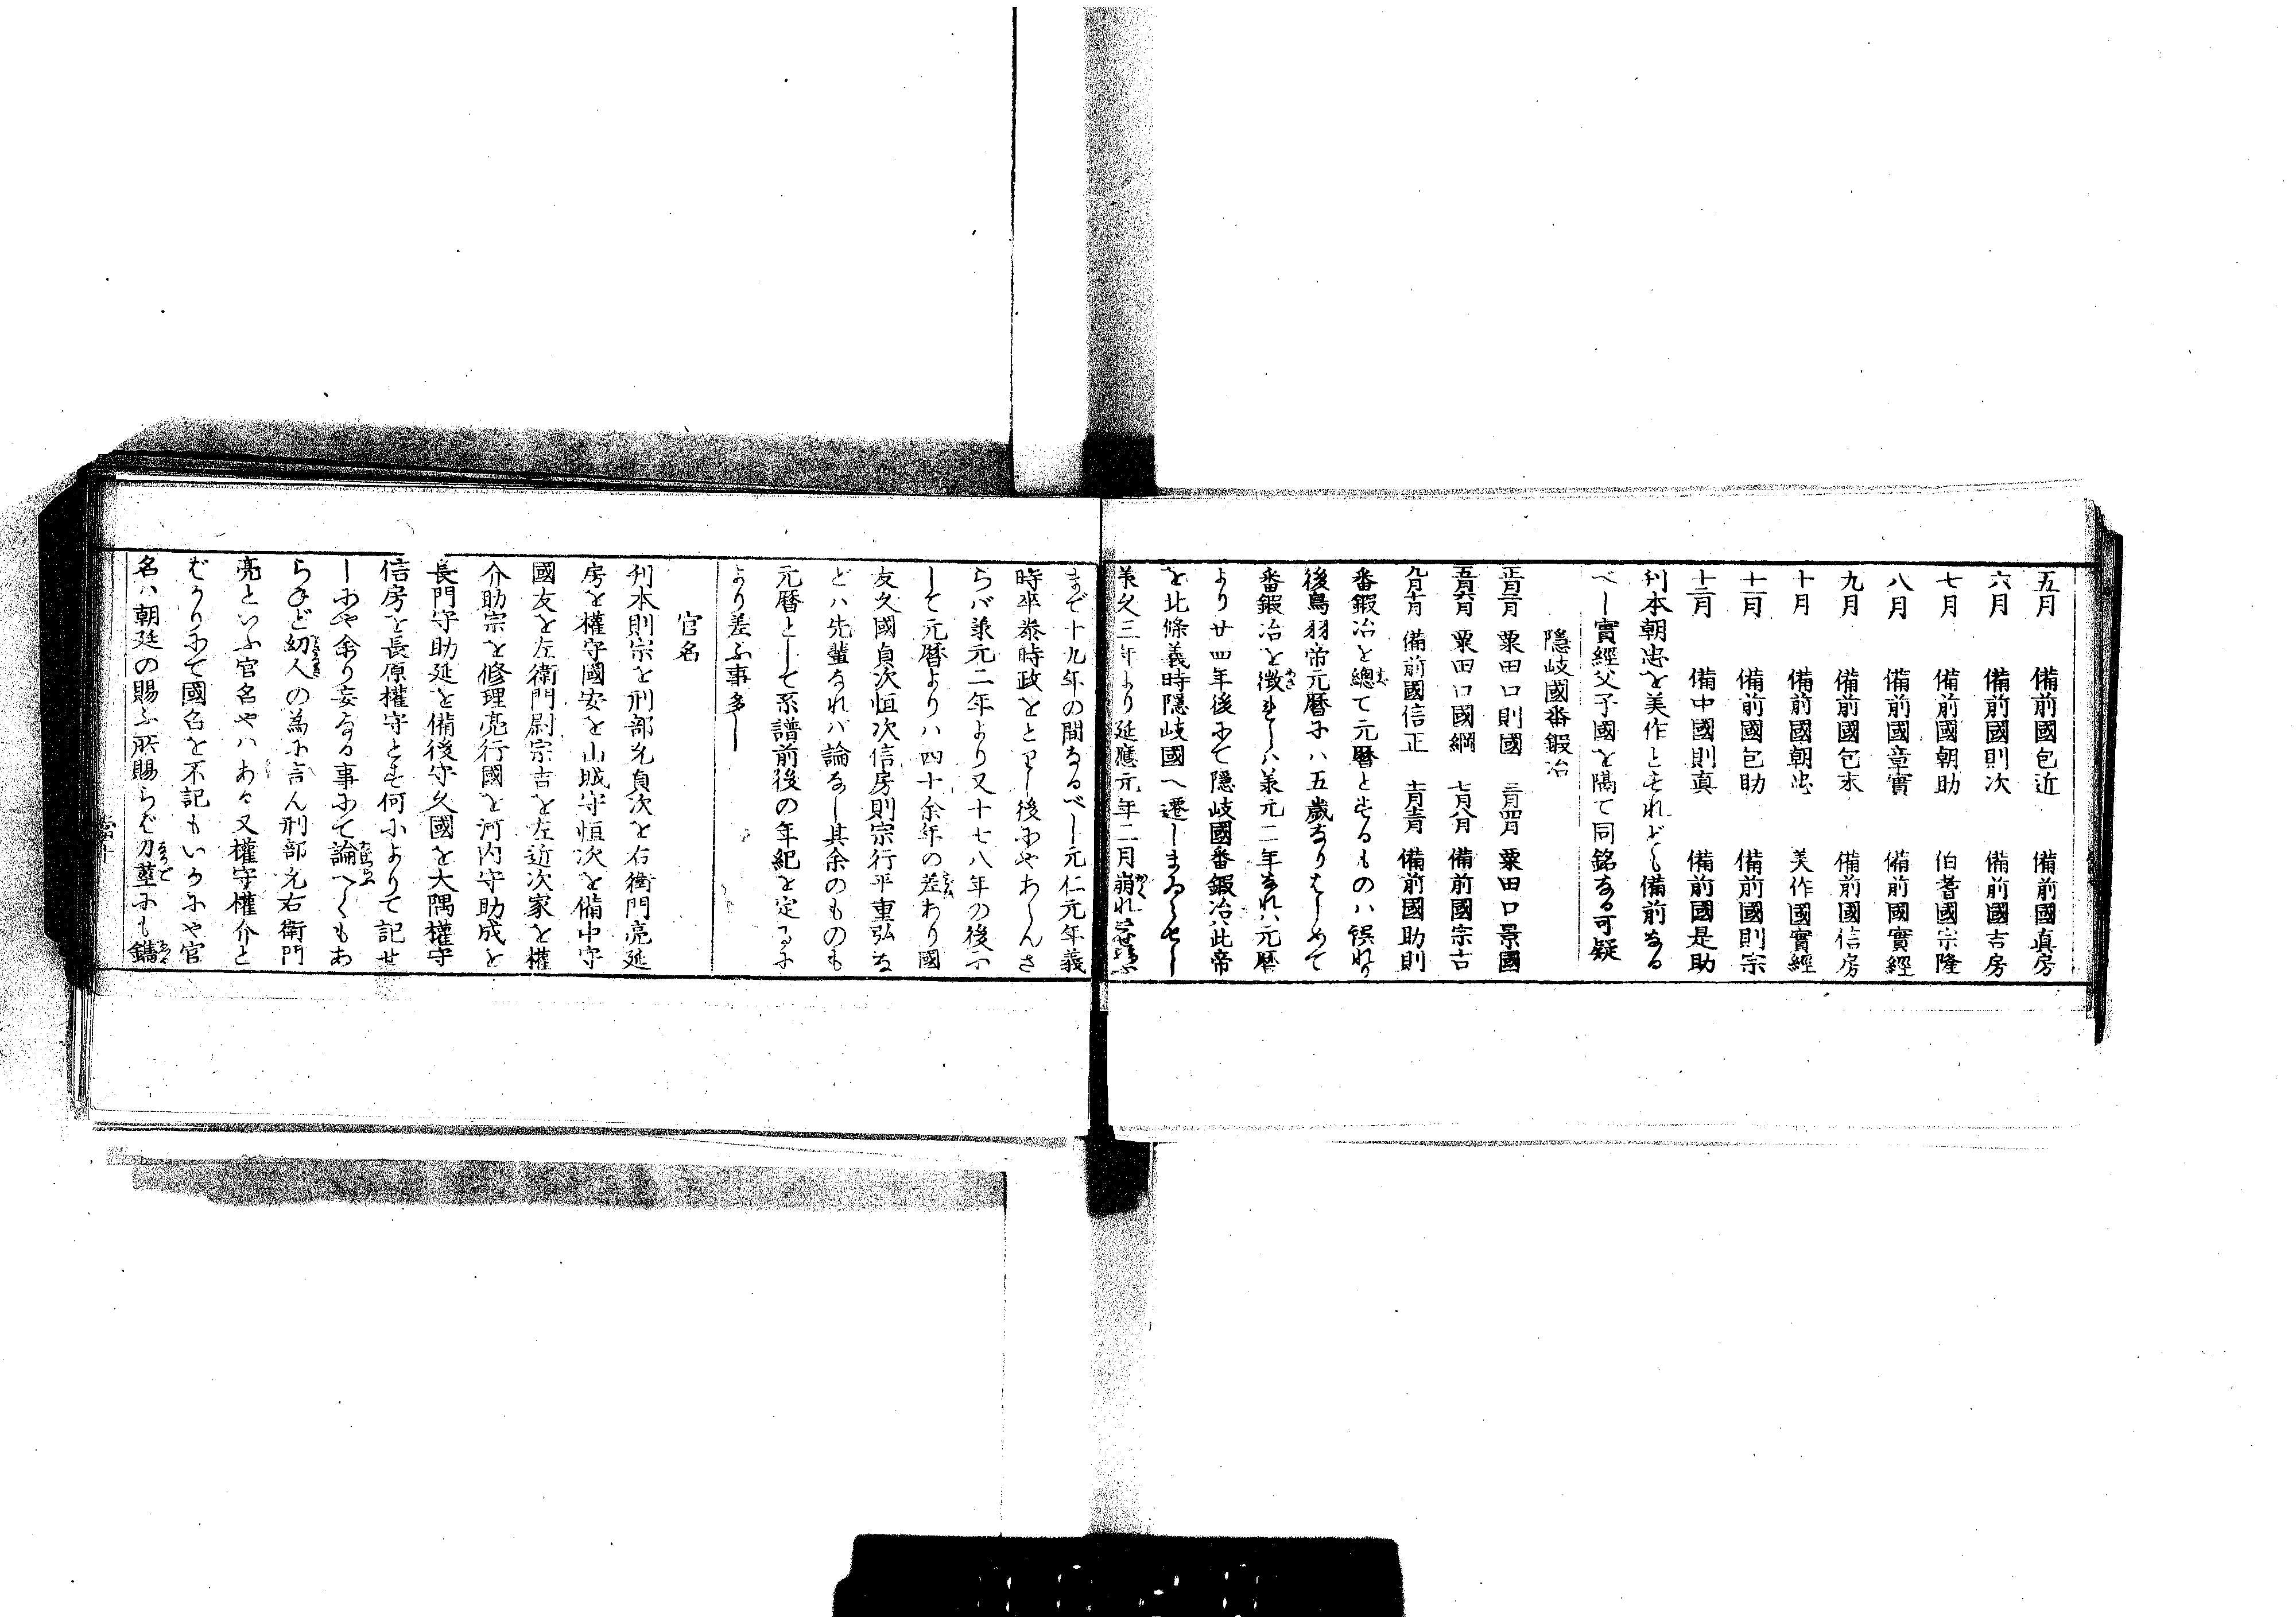 五月 備前國包近 備前國真房
六月 備前國則次 備前國吉房
七月 備前國朝助 伯耆國宗隆
八月 備前國章實 備前國實經
九月 備前國包末 備前國信房
十月 備前國朝忠 美作國實經
十一月 備前國包助 備前國則宗
十二月 備中國則真 備前國是助
刋本朝忠を美作とそれども備前なる
べし實經父子國を隔て同銘なる可疑
隠岐國番鍜冶
正月二月 粟田口則國 三月四月 粟田口景國
五月六月 粟田口國綱 七月八月 備前國宗吉
九月十月 備前國信正 十一月十二月 備前國助則
番鍜冶を總て元暦とするものハ誤れり
後鳥羽帝元暦にハ五歳なりはじめて
番鍜冶を徴せしハ兼元二年なれハ元暦
より廿四年後にて隠岐國番鍜冶ハ此帝
を北條義時隠岐國へ遷しまゐらせし
兼久三年より延應元年二月崩れ
まで十九年の間なるべし元仁元年義
時卒泰時政をとりし後にやあらんさ
らバ兼元二年より又十七八年の後に
して元暦よりハ四十余年の差あり國
友久國貞次恒次信房則宗行平重弘な
どハ先輩なれバ論なし其余のものも
元暦として系譜前後の年紀を定るに
より差ふ事多し
官名
刋本則宗を刑部允貞次を右衛門亮延
房を權守國安を山城守恒次を備中守
國友を左衛門尉宗吉を左近次家を權
介助宗を修理亮行國を河内守助成を
長門守助延を備後守久國を大隅權守
信房を長原權守とそ何によりて記せ
しにや余り妄なる事にて論へくもあ
らねど幼人の為に言ん刑部允右衛門
亮といふ官名やハある又權守權介と
ばかりにて國名を不記もいかにや官
名ハ朝廷の賜ふ所賜らば刀莖にも鐫